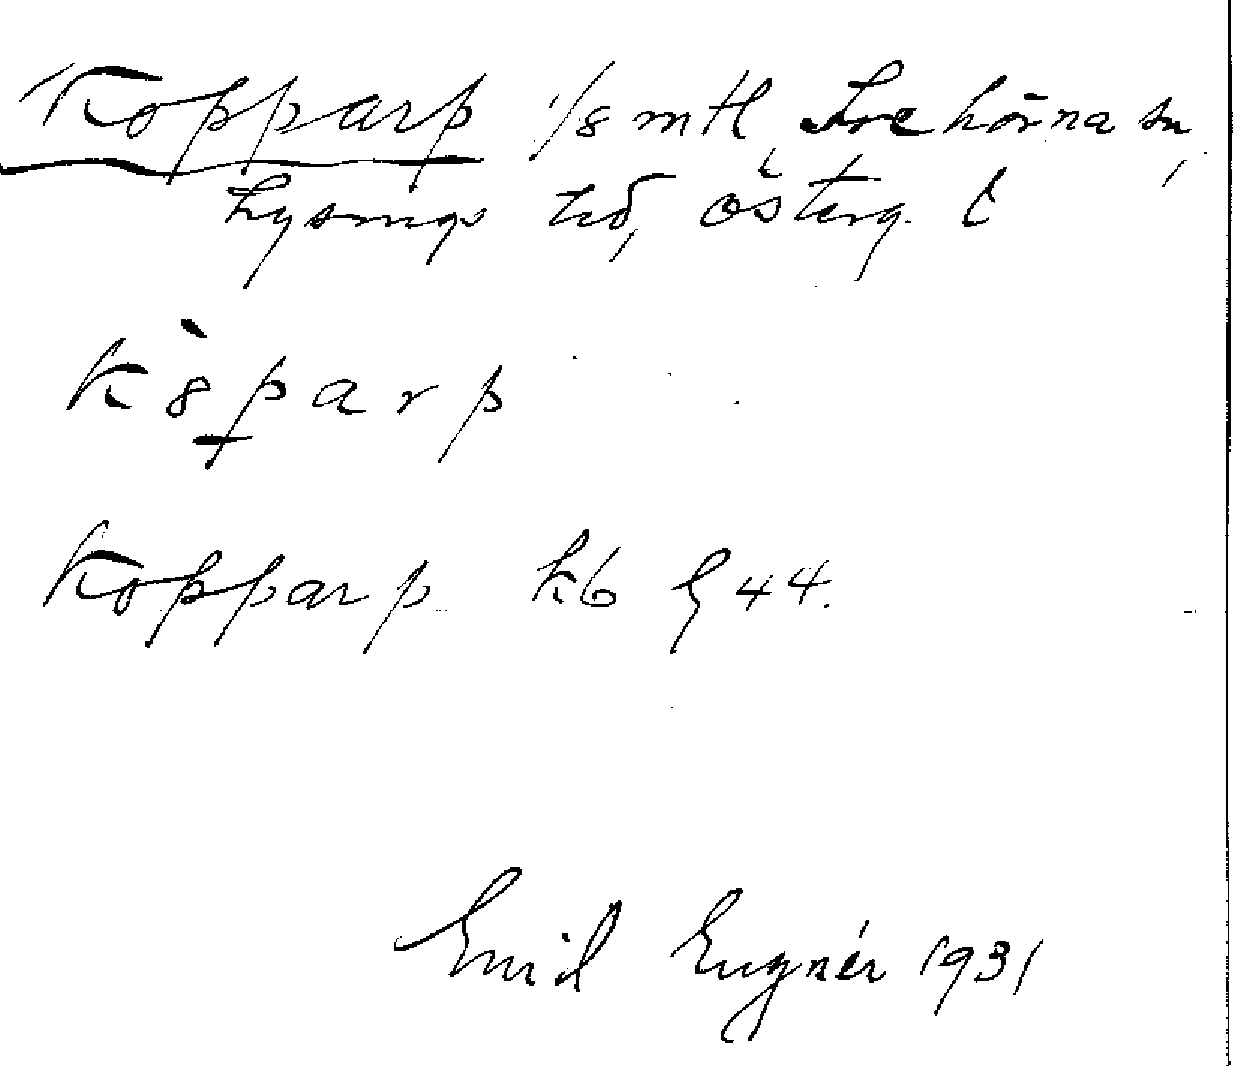 Kopparp 1/8 mtl, Trehörna sn,
Lysings hd, Österg. l
K8̀parp
Kopparp kb § 44.
Emil Eugnér 1931